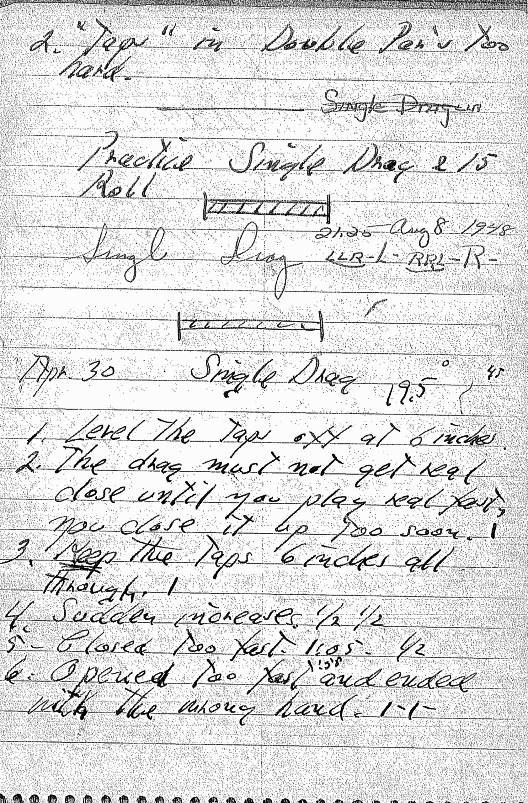 2. "Taps" in Double Par's too
hard.
Single Drag
Practice Single Drag & 15
Roll
Aug 8 1948
Singl Drag LLR-L- RRL-R-
Apr. 30 Single Drag 19.5° 45
1. Level the Taps off at 6 inches
2. The drag must not get real
close until you play real fast,
you close it up too soon. 1
3. Keep the Taps 6 inches all
through. 1
4. Sudden increases. 1/2 1/2
5- Closed too fast. 1:05- 1/2
6. Opened too fast and ended
with the wrong hand. 1-1-